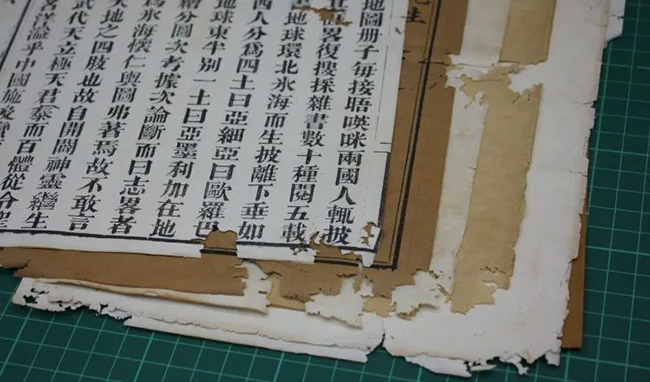 地圖册子每接晤暎咪兩國人輒披
畧復搜採雜書數十種閱五載
地球環北氷海而生披離下垂如
西人分爲四土曰亞細亞曰歐羅巴
地球東半別一土曰亞墨利加在地
繪分圖次考據次論斷而曰志畧者
爲氷海懷仁與圖弗著焉故不敢言
大地之四肢也故自開闢神靈繼生
武代天立極天君泰而百體從令聖
名洋溢乎中國施及蠻